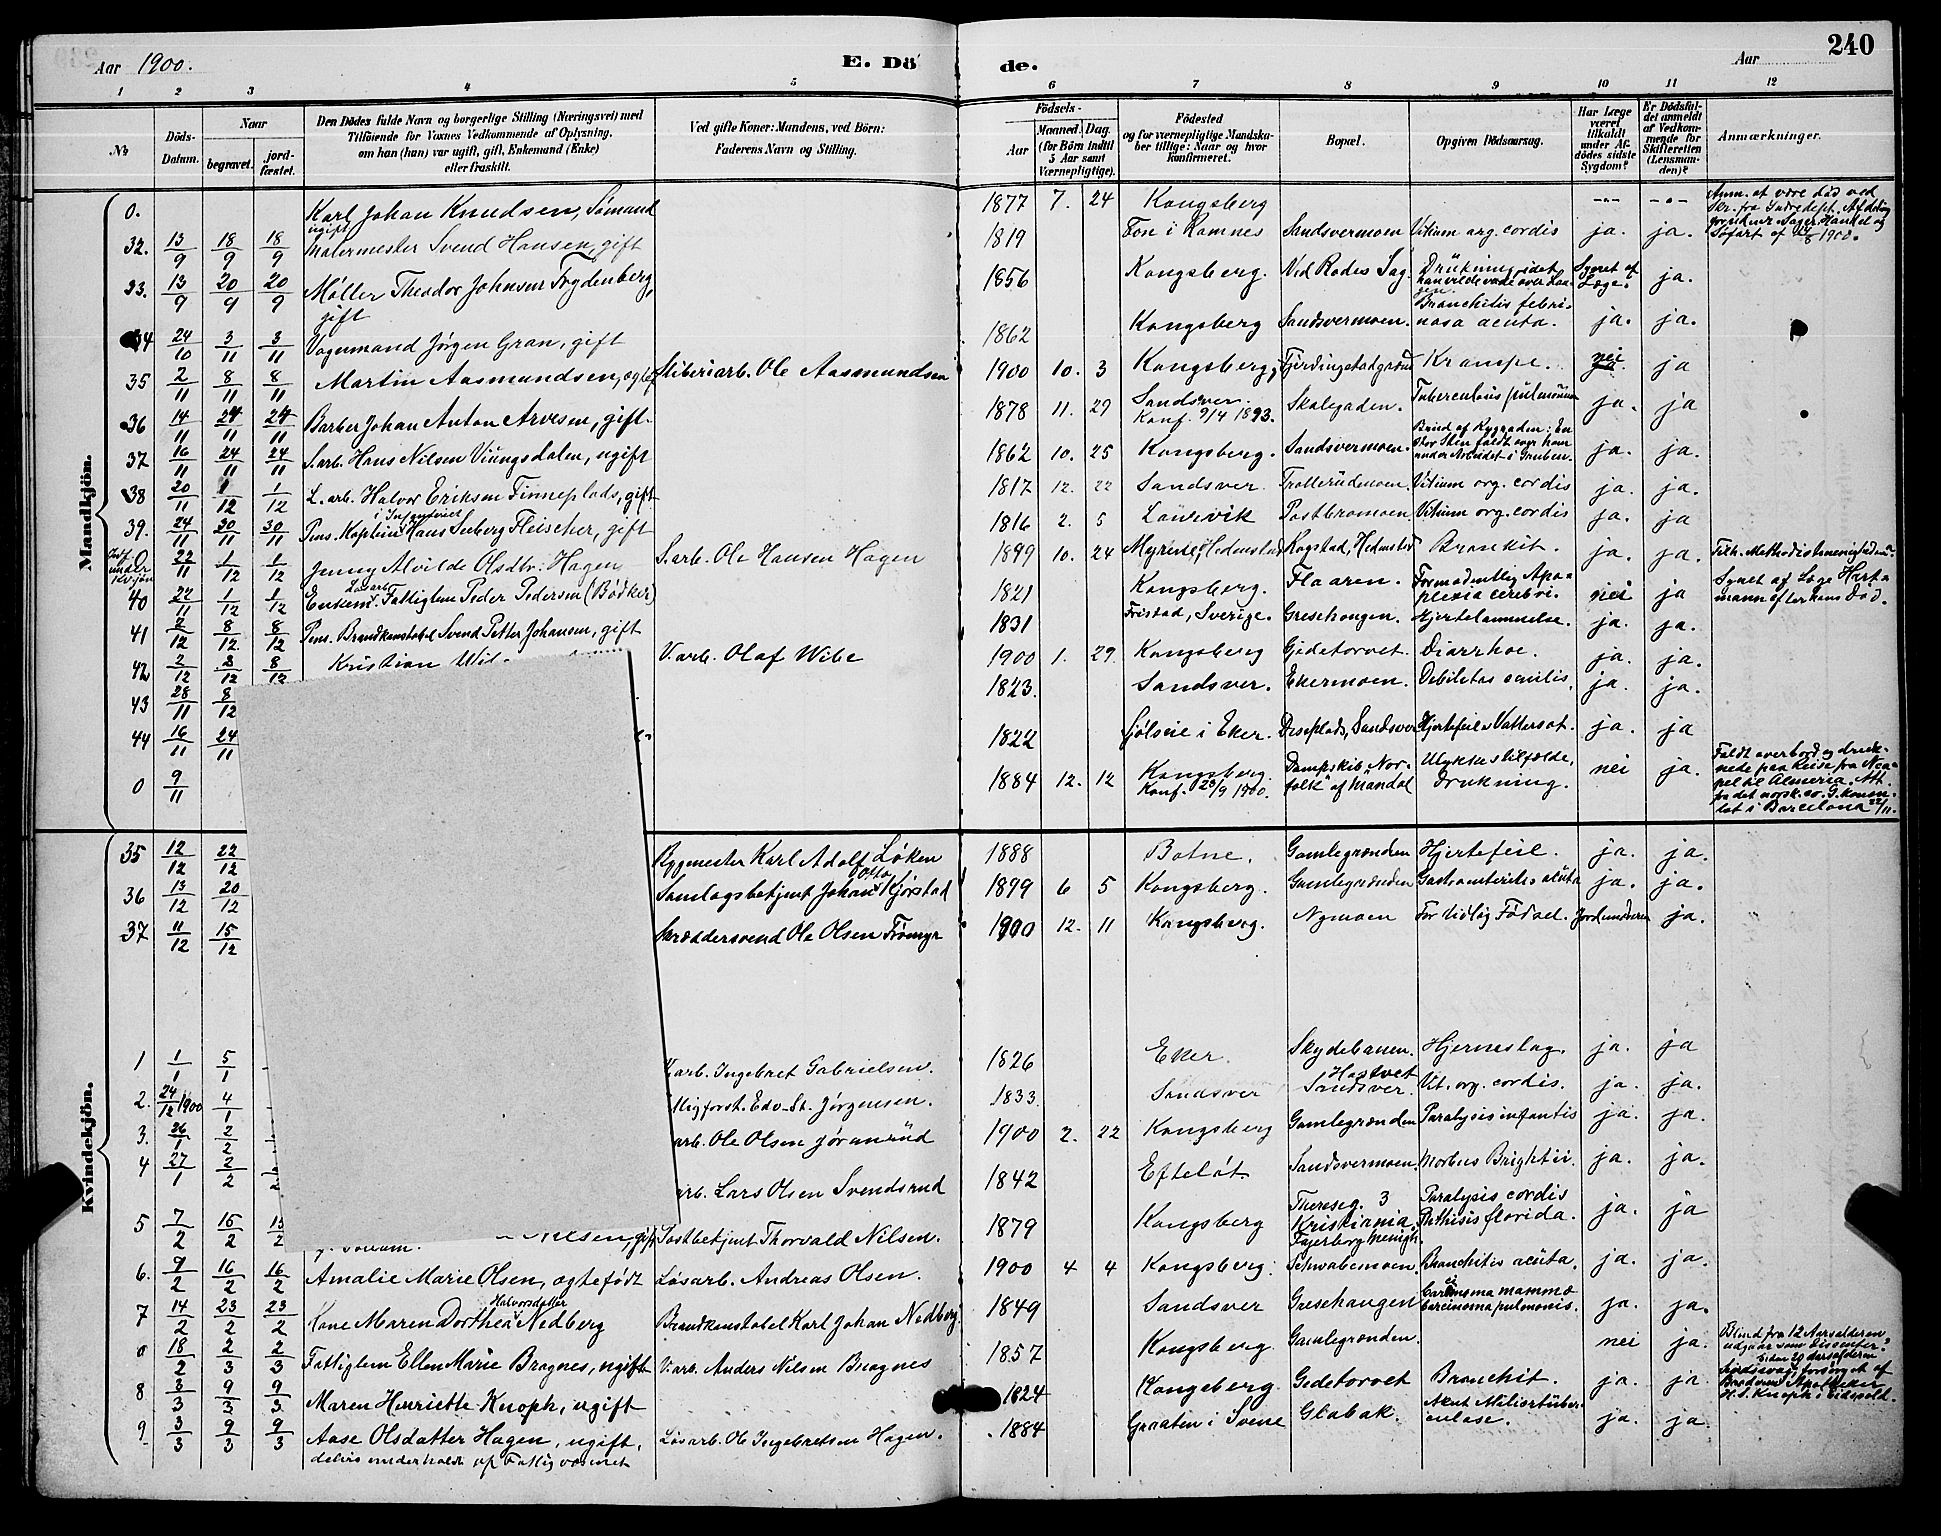 Aar 1900.
E. Dö
de.
Aar
240
1 2 3 4 5 6 7 8 9 10 11 12
No
Döds-Datum.
Naar
begravet.
jord-fæstet.
Den Dödes fulde Navn og borgerlige Stilling (Næringsvei) med
Tilföiende for Voxnes Vedkommende af Oplysning,
om han (hun) var ugift, gift, Enkemand (Enke)
eller fraskilt.
Ved gifte Koner: Mandens, ved Börn:
Faderens Navn og Stilling.
Födsels-
Aar
Maaned. Dag.
(for Börn indtil
5 Aar samt
Værnepligtige).
Födested
og for værnepligtige Mandska-
ber tillige: Naar og hvor
konfirmeret.
Bopæl.
Opgiven Dödsaarsag.
Har Læge
været
tilkaldt
under Af-
dödes sidste
Sygdom?
Er Dödsfal-
det anmeldt
af Vedkom-
mende for
Skifteretten
(Lensman-
den)?
Anmærkninger.
Mandkjön.
0. Karl Johan Knudsen, Sømand ugift 1877 7. 24 Kongsberg -"- -"- Anm. at være død ved Skr. fra Indredept. Afdeling for Handel og Søfart af 1900.
32. 13/9 18/9 18/9 Malermester Svend Hansen, gift 1819 Fon i Ramnes Sandsvermoen Vitium org. cordis ja. ja.
33. 13/9 20/9 20/9 Møller Theodor Johnsen Frydenberg, gift 1856 Kongsberg. Ved Rodes Sag. Drukning, idet han vilde vade over Laagen. Synet af Læge. ja.
34 24/10 3/11 3/11 Vognmand Jørgen Gran, gift 1862 Kongsberg Sandsvermoen. Bronchitis febrinosa acuta. ja. ja.
35 2/11 8/11 8/11 Martin Aasmundsen, ægtef Stiberiarb. Ole Aasmundsen 1900 10. 3 Kongsberg, Krampe. nei ja
36 14/11 24/11 24/11 Barber Johan Anton Arvesen, gift. 1878 11. 29 Sandsver. Konf. 9/4 1893. Skolegaden. Tuberculosis pulmonum ja. ja
37 16/11 24/11 24/11 S.arb. Hans Nilsen Viungsdalen, ugift 1862 10. 25 Kongsberg. Sandsvermoen. Brud af Rygraden: En stor Sten faldt over ham under Arbeidet i Gruben. ja. ja.
38 20/11 1/12 1/12 L. arb. Halvor Eriksen Finneplads, gift 1817 12. 22 Sandsver. Trollerudmoen. Vitium org. cordis ja. ja.
39. 24/11 30/11 30/11 Pens. Kaptein i Infanteriet Hans Seeberg Fleischer, gift 1816 2. 5 Laurvik Postbromoen. Vitium org. cordis ja. ja
0 22/11 1/12 1/12 Jenny Alvilde Olsdtr. Hagen S.arb. Ole Hansen Hagen 1899 10. 24 Myrene, Hedenstad Rogstad, Hedenstad Bronkit. ja. ja. Tilh. Methodistmenigheden.
40 22/11 1/12 1/12 Enkem. Løsarb. Fattiglem Peder Pedersen (Bødker) 1821 Kongsberg. Flaaren. Formodentlig Apoplexia cerebri. nei ja Synet af Læge Hartmann efter hans Død.
41 2/12 8/12 8/12 Pens. Brandkonstabel Svend Petter Johansen, gift 1831 Fristad, Sverige. Gresehongen. Hjertelammelse. ja. ja.
42 2/12 8/12 8/12 Kristian Wi V.arb. Olaf Wibe 1900 1. 29. Kongsberg Gjedetorvet. Diarrhoe. ja. ja.
43 28/11 8/12 1823. Sandsver. Ekermoen. Debilitas senilis. ja. ja.
44 16/11 24/11 1822 Fjølseie i Eker. Diseplads, Sandsver Hjertefeil. Vattersot. ja. ja
0 9/11 1884 12. 12 Kongsberg. Konf. 23/9 1900. Dampskib "Norfolk" af Mandal Ulykkestilfælde, Drukning. nei ja. Faldt overbord og druknede paa Reise fra Neapel til Almeria. Att. fra det norsk.sv. G. konsulat i Barcelona 22/11.
Kvindekjön.
35 12/12 22/12 Bygmester Karl Adolf Løken 1888 Botne. Gamlegrænden Hjertefeil. ja. ja.
36 13/12 20/12 Samlagsbetjent Johan Otto Kjørstad 1899 6 5 Kongsberg. Gamlegrænden Gastroenteritis acuta ja. ja.
37 11/12 15/12 Skræddersvend Ole Olsen Frømyr 1900 12. 11 Kongsberg. Nymoen For tidlig Fødsel. Jordemoderen ja.
1 1/1 5/1 arb. Ingebret Gabrielsen. 1826 Eker. Skydebanen. Hjerneslag. ja. ja
2. 24/12 1900 4/1 Edv. St. Jørgensen. 1833. Sandsver Hostvet Sandsver. Vit. org. cordis. ja. ja.
3. 26/1 2/2 arb. Ole Olsen Jøranrud 1900 2. 22 Kongsberg Gamlegrænden Paralysis infantis ja. ja.
4 27/1 2/2 arb. Lars Olsen Svendsrud 1842 Efteløt. Sandsvermoen. Morbus Brightii. ja. ja.
5 7/2 16/2 Nilsen, gift Postbetjent Thorvald Nilsen. 1879 Kongsberg Thereseg. 3 Kristiania, Fagerborg Menigh. Paralysis cordis Phthisis florida. ja. ja
6. 9/2 16/2 16/2 Amalie Marie Olsen, ægtefødt Løsarb. Andreas Olsen. 1900 4 4 Kongsberg. Schwabemoen. Bronchitis acuta. ja. ja.
7 14/2 23/2 23/2 Kone Maren Dorthea Halvorsdatter Nedberg Brandkonstabel Karl Johan Nedberg 1849 Sandsver Gresehaugen Carcinoma mamma carcinoma pulmonis. ja. ja.
0 18/2 2/3 2/3 Fattiglem Ellen Marie Bragnes, ugift V.arb. Anders Nilsen Bragnes 1857 Kongsberg. Gamlegrænden. nei ja. Blind fra 12 Aarsalderen
8 3/3 9/3 9/3 Maren Henriette Knoph, ugift 1824 Kongsberg. Gjedetorvet Bronchit. ja. ja forsørget af Broderen Apotheker H. S. Knoph i Eidsvold.
9 3/3 9/3 9/3 Aase Olsdatter Hagen, ugift, delvis underholdt af Fattigvæsenet Løsarb. Ole Ingebretsen Hagen. 1884 Graaten i Svene Glabak. Akut Miliærtuberculose. ja. ja.